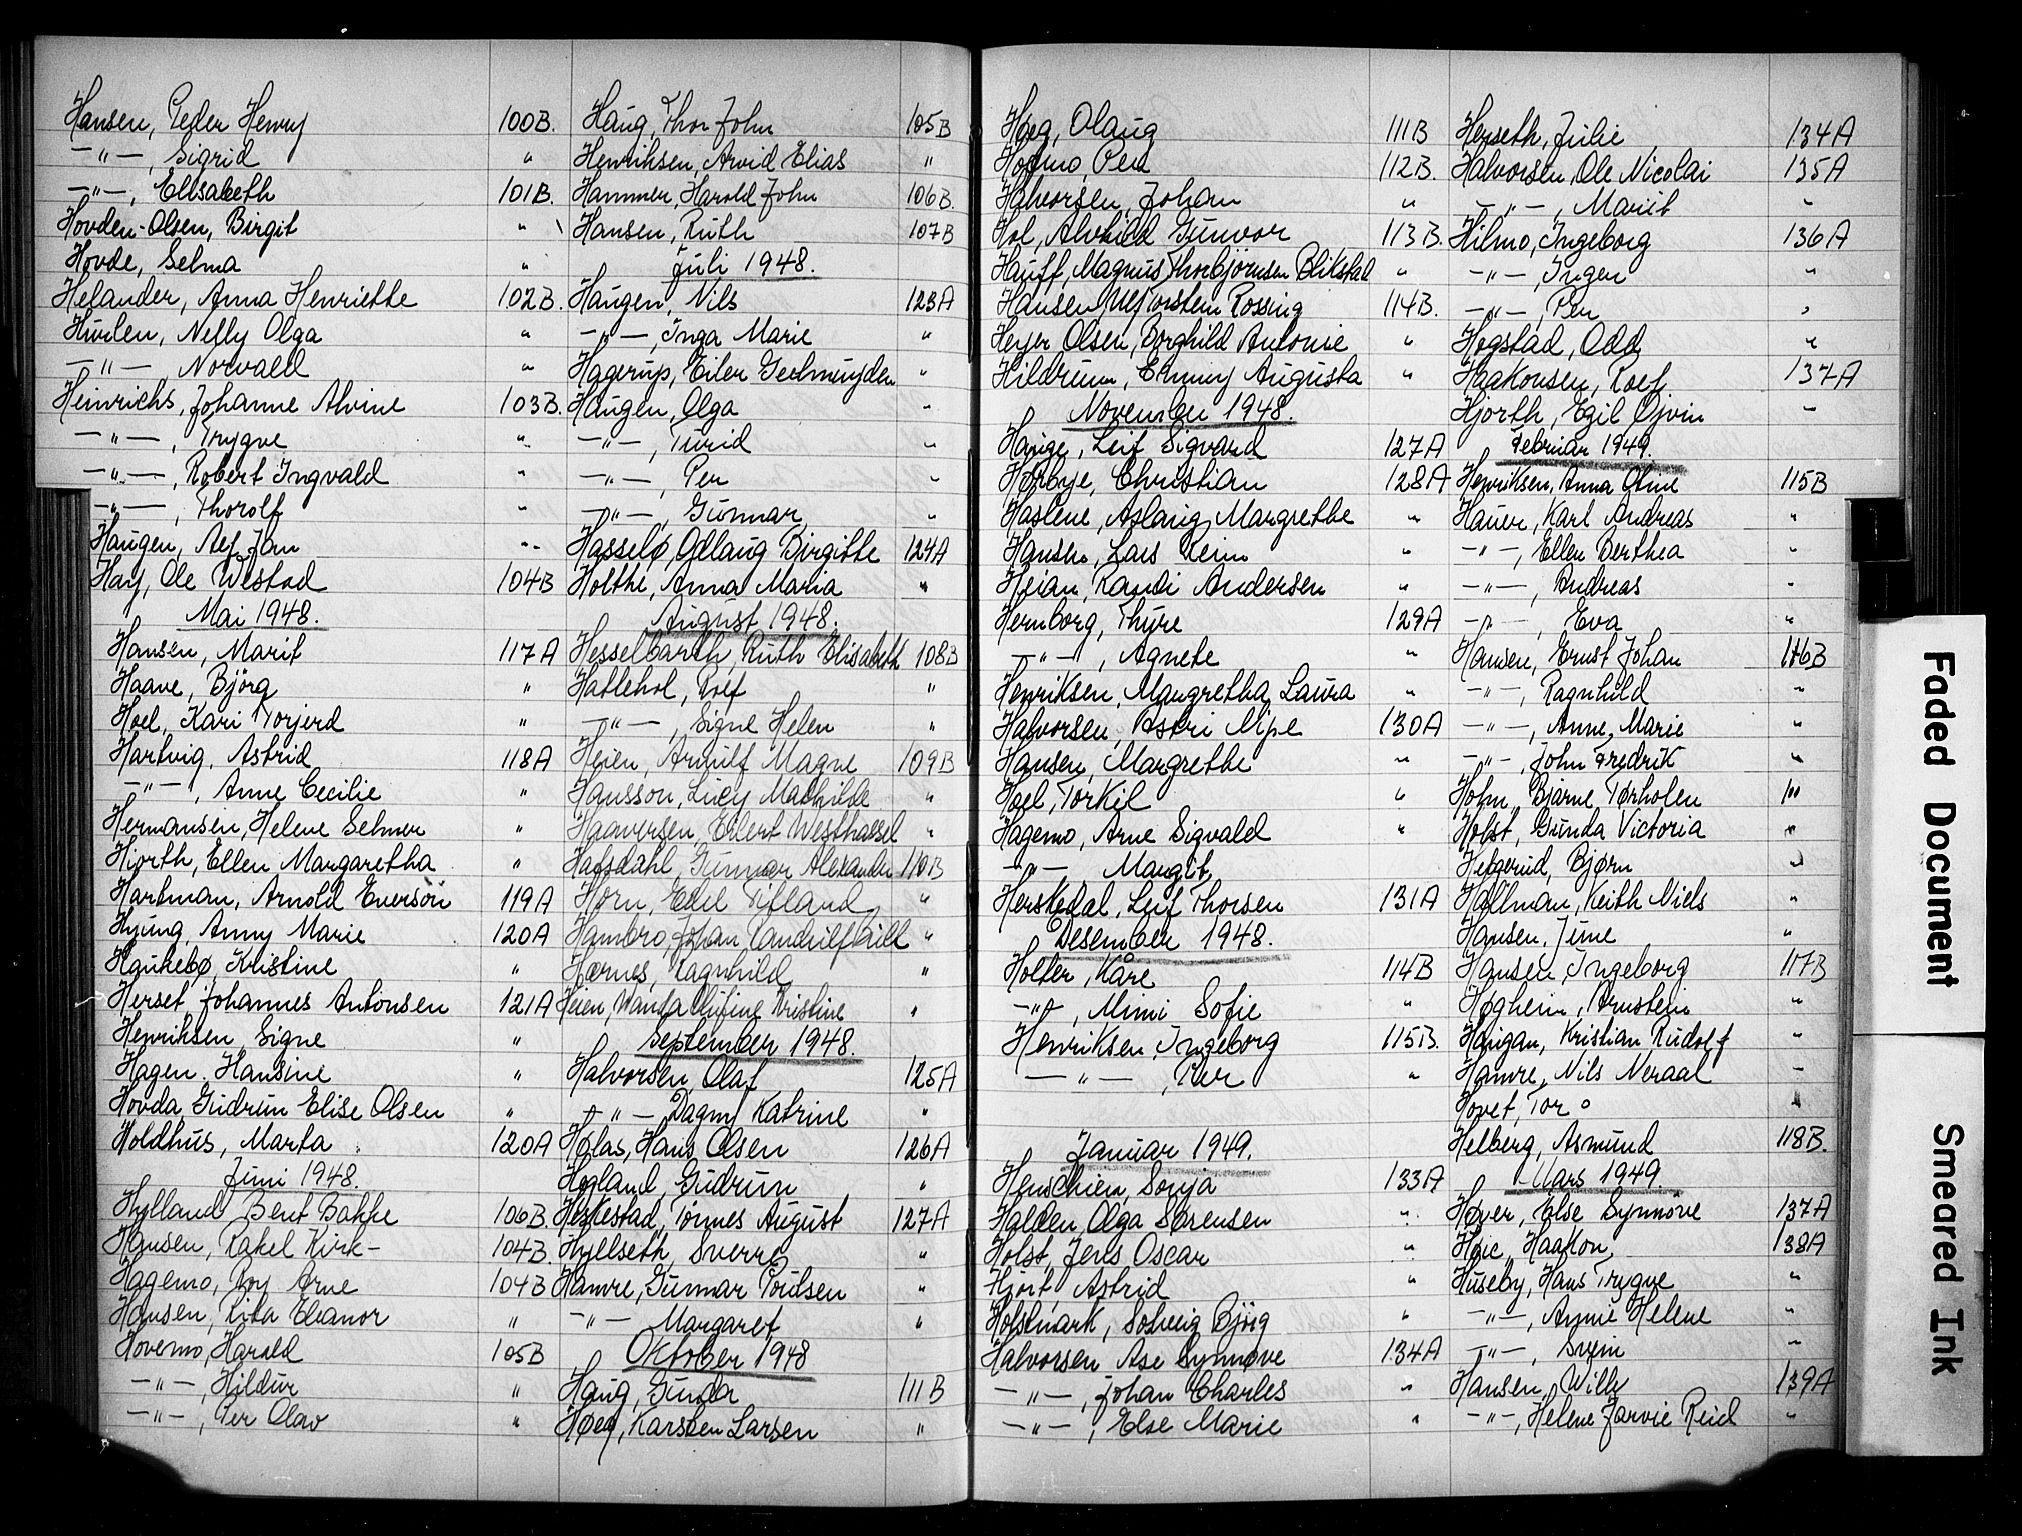 Hansen, Peder Henry 100B.
-"-, Sigrid "
-"-, Ellisabeth 101B.
Hovden-Olsen, Birgit "
Hovde, Selma "
Helander, Anna Henriette 102B.
Hvilen, Nelly Olga "
-"-, Norvald "
Heinrichs, Johanne Alvine 103B.
-"-, Trygve "
-"-, Robert Ingvald "
-"-, Thorolf "
Haugen, Alf Jan "
Høy, Ole Westad 104B
Mai 1948.
Hansen, Marit 117A
Haave, Björg "
Hoel, Kari Torjerd "
Hartvig, Astrid 118A
-"-, Anne Cecilie "
Hermansen, Helene Selmer "
Hjorth, Ellen Margaretha "
Hartman, Arnold Everson 119A
Hjung, Anny Marie 120A
Haukebø, Kristine "
Herset Johannes Antonsen 121A
Henriksen Signe "
Hagen. Hansine "
Hovda, Gudrun Elise Olsen "
Holdhus, Marta 120A
Juni 1948.
Hylland Bent Bakke 106B.
Hansen, Rakel Kirk- 104B.
Hagemo, Roy Arne 104B
Hansen, Rita Eleanor "
Hovemo, Harald 105B
-"-, Hildur "
-"-, Per Olav "
Haug, Thor John 105B
Henriksen, Arvid Elias "
Hammer, Harold John 106B.
Hansen, Ruth 107B
Juli 1948.
Haugen, Nils 123A
-"-, Inga Marie "
Hagerup, Eiler Geelmuyden "
Haugen, Olga "
-"-, Turid "
-"-, Per "
-"-, Gunnar "
Hasselø, Odlaug Birgitte 124A
Holthe, Anna Maria "
August 1948.
Hesselbarth, Ruth Elisabeth 108B
Hatlehol, Rolf "
-"-, Signe Helen "
Heien, Arnulf Magne 109B
Hansson, Lucy Mathilde "
Haaversen, Eilert Westhassel "
Hafsdahl, Gunnar Alexander 110B
Horn, Edel Tifland "
Hambro, Johan "
Hornes, Ragnhild "
Heien, Wanda Kristine "
September 1948.
Halvorsen, Olaf 125A
-"- Dagny Katrine "
Holas, Hans Olsen 126A
Hogland, Gudrun "
Heskestad, Tønnes August 127A
Hyllseth, Sverre "
Hamre, Gunnar Poulsen "
-"- Margaret "
Oktober 1948
Haug, Gunda 111B
Høeg, Karsten Larsen "
Høeg, Olaug 111B
Holmo, Per 112B.
Halvorsen, Johan "
Hol, Alvhild Gunvor 113B.
Hauff, Magnus Thorbjørnsen Blikstad "
Hansen, Ulf Torstein Rossing 114B.
Heyer Olsen, Borghild Antonie "
Hildrum, Emmy Augusta "
November 1948.
Hauge, Leif Sigvard 127A
Hørbye, Christian 128A
Haslene, Aslaug Margrethe "
Hansen, Lars Reim "
Heian, Randi Andersen "
Hernborg, Thyre 129A
-"-, Agnete "
Henriksen, Margretha Laura "
Halvorsen, Astri Nipe 130A
Hansen, Margrethe "
Hoel, Torkil "
Hagemo, Arne Sigvald "
-"- Margit
Herskedal, Leif Thorsen 131A
Desember 1948.
Holter, Kåre 114B
-"-, Mimi Sofie "
Henriksen, Ingeborg 115B.
-"-, Per "
Januar 1949.
Henschien, Sonja 133A
Halden Olga Sørensen "
Holst, Jens Oscar "
Hjort, Astrid "
Holstmark, Solveig Bjørg "
Halvorsen Åse Synnøve 134A
-"-, Johan Charles "
-"-, Else Marie "
Herseth, Julie 134A
Halvorsen, Ole Nicolai 135A
-"-, Marit "
Hilmo, Ingeborg 136A
-"-, Inger "
-"-, Per "
Hogstad, Odd "
Haakonsen, Rolf 137A
Hjorth, Egil Øjvin "
Februar 1949.
Henriksen, Anna Oline 115B
Hauer, Karl Andreas "
-"-, Ellen Berthea "
-"-, Andreas "
-"-, Eva "
Hansen, Ernst Johan 116B
-"-, Ragnhild "
-"-, Anne Marie "
-"-, John Fredrik "
Holm, Bjarne Tørholen "
Holst, Gunda Victoria "
Helgerud, Bjørn "
Hallman, Keith Niels "
Hansen, June "
Hansen, Ingeborg 117B
Høgheim, Arnstein "
Haugan, Kristian Rudolf "
Hamre, Nils Neraal "
Hovet, Tor "
Helberg, Asmund 118B.
Mars 1949.
Høyer, Else Synnøve 137A
Hoie, Haakon 138A
Huseby, Hans Trygve "
-"-, Annie Helene "
-"-, Svein "
Hansen, Willy 139A
-"-, Helene Jarvie Reid "
Faded Document
Smeared Ink